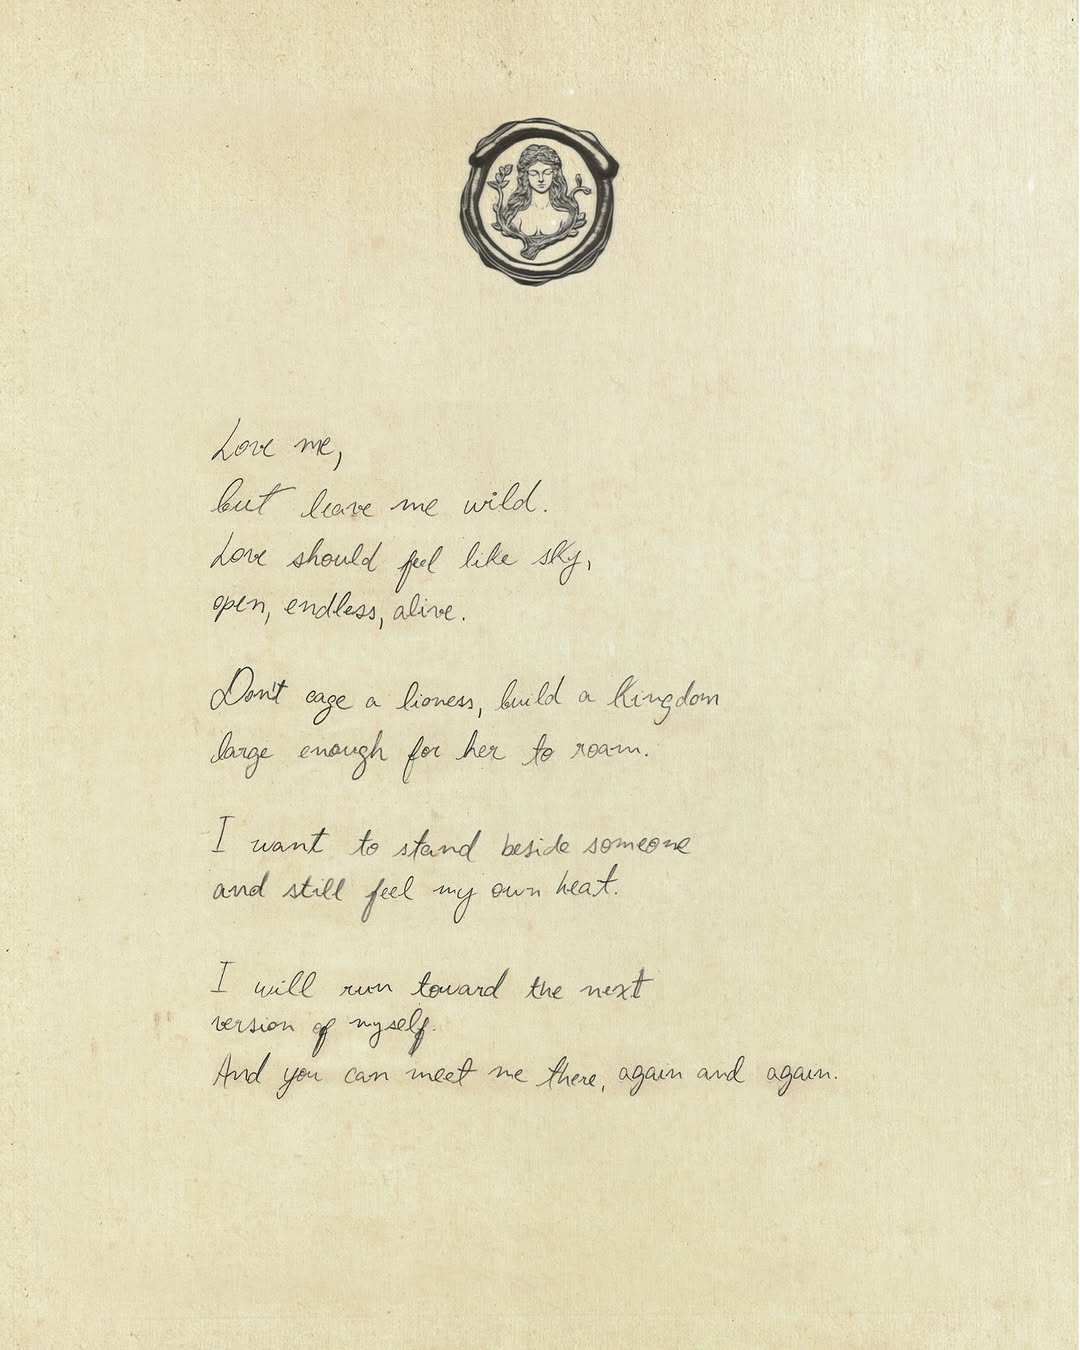 Love me,
but leave me wild.
Love should feel like sky,
open, endless, alive.
Don't cage a lioness, build a kingdom
large enough for her to roam.
I want to stand beside someone
and still feel my own heat.
I will run toward the next
version of myself.
And you can meet me there, again and again.